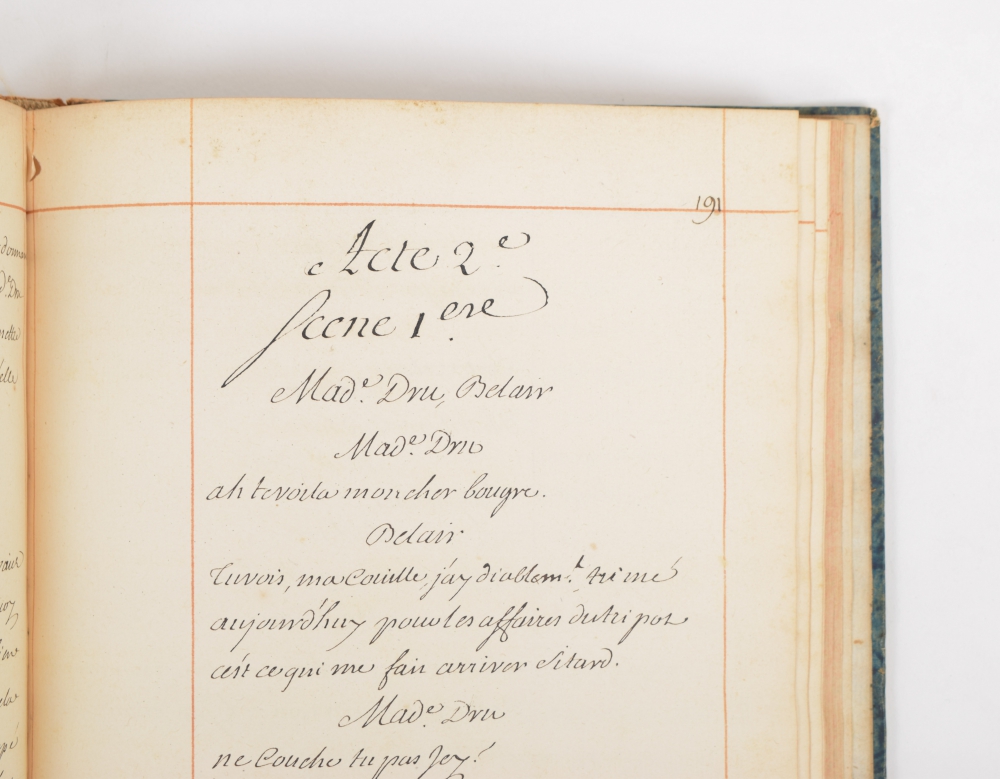 191
Acte 2.e
Scene 1.ere
Mad.e Dru, Belair
Mad.e Dru
ah te voila mon cher bougre.
Belair
Tu vois, ma Couille, j'ay diablem.t trimé
aujourd'huy pour les affaires du tripot
c'est ce qui me fait arriver si tard.
Mad.e Dru
ne Couche tu pas Icy?